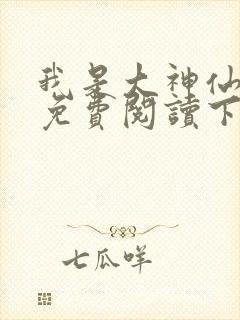 我是大神仙
免費閱讀下
七瓜咩